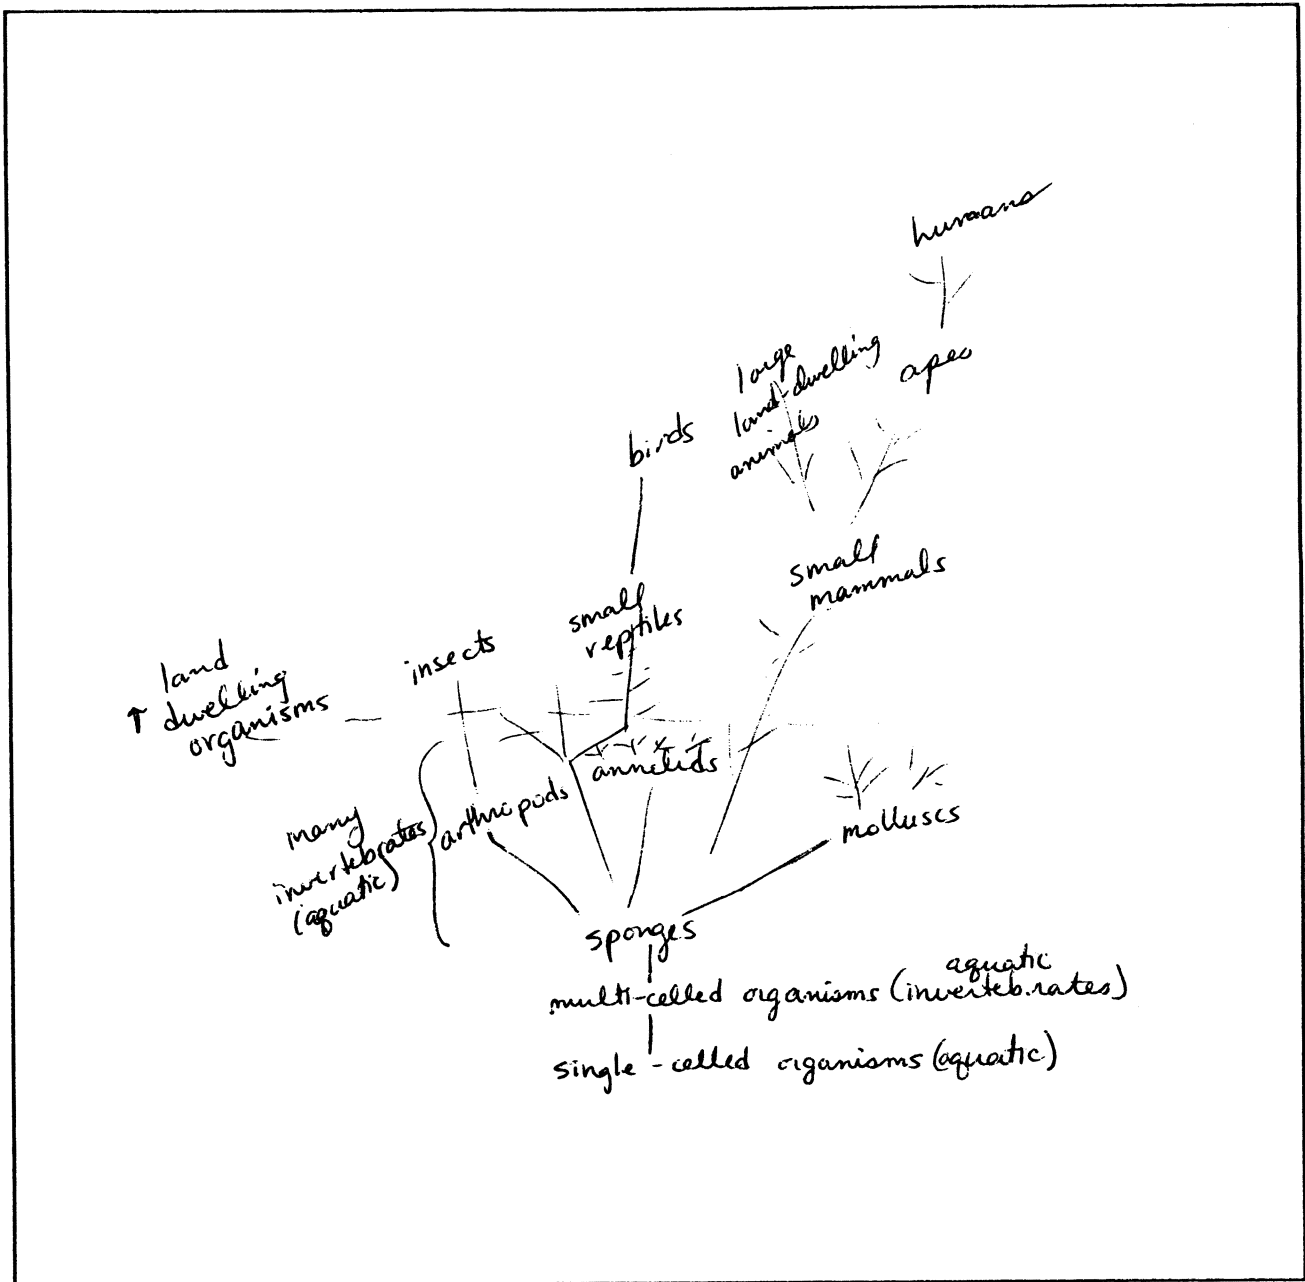 humans
large
land-dwelling
animals
apes
birds
small
mammals
small
reptiles
insects
land
↑ dwelling
organisms
annelids
many
invertebrates
(aquatic)
arthropods
molluscs
sponges
aquatic
multi-celled organisms (invertebrates)
single-celled organisms (aquatic)